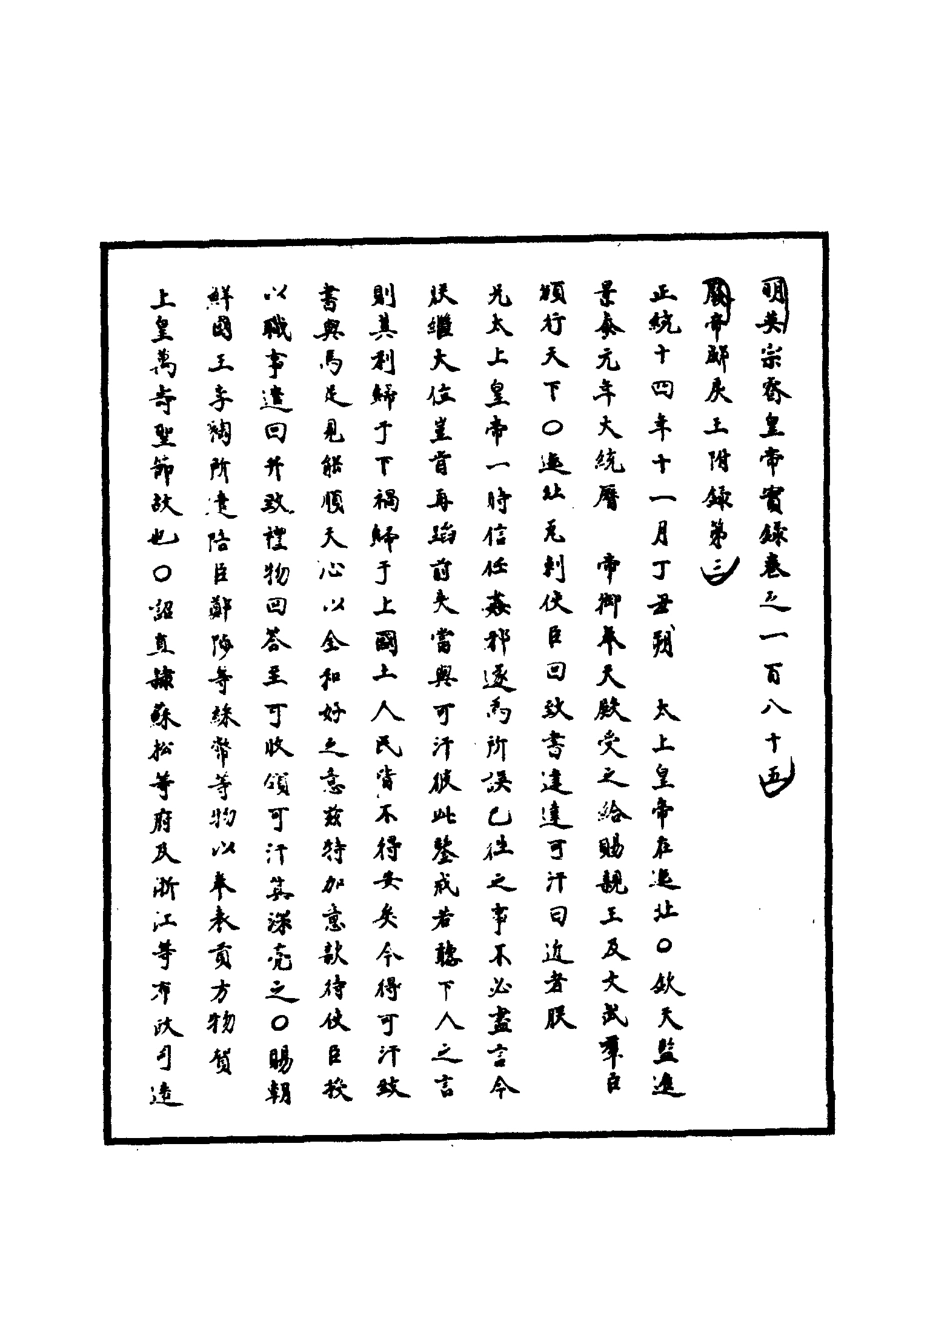 明英宗睿皇帝實錄卷之一百八十五
廢帝郕戾王附錄第三
正統十四年十一月丁丑朔　太上皇帝在迤北○欽天監進
景泰元年大統曆　帝御奉天殿受之給賜親王及文武羣臣
頒行天下○迤北瓦剌使臣回致書達達可汗曰近者朕
兄太上皇帝一時信任姦邪遂為所誤已往之事不必盡言今
朕繼大位豈肯再蹈前失當與可汗彼此鑒戒若聽下人之言
則其利歸于下禍歸于上國土人民皆不得安矣今得可汗致
書與馬足見能順天心以全和好之意茲特加意款待使臣授
以職事遣回并致禮物回答至可收領可汗其深亮之○賜朝
鮮國王李祹所遣陪臣鄭陟等綵幣等物以奉表貢方物賀
上皇萬壽聖節故也○詔直隸蘇松等府及浙江等布政司造